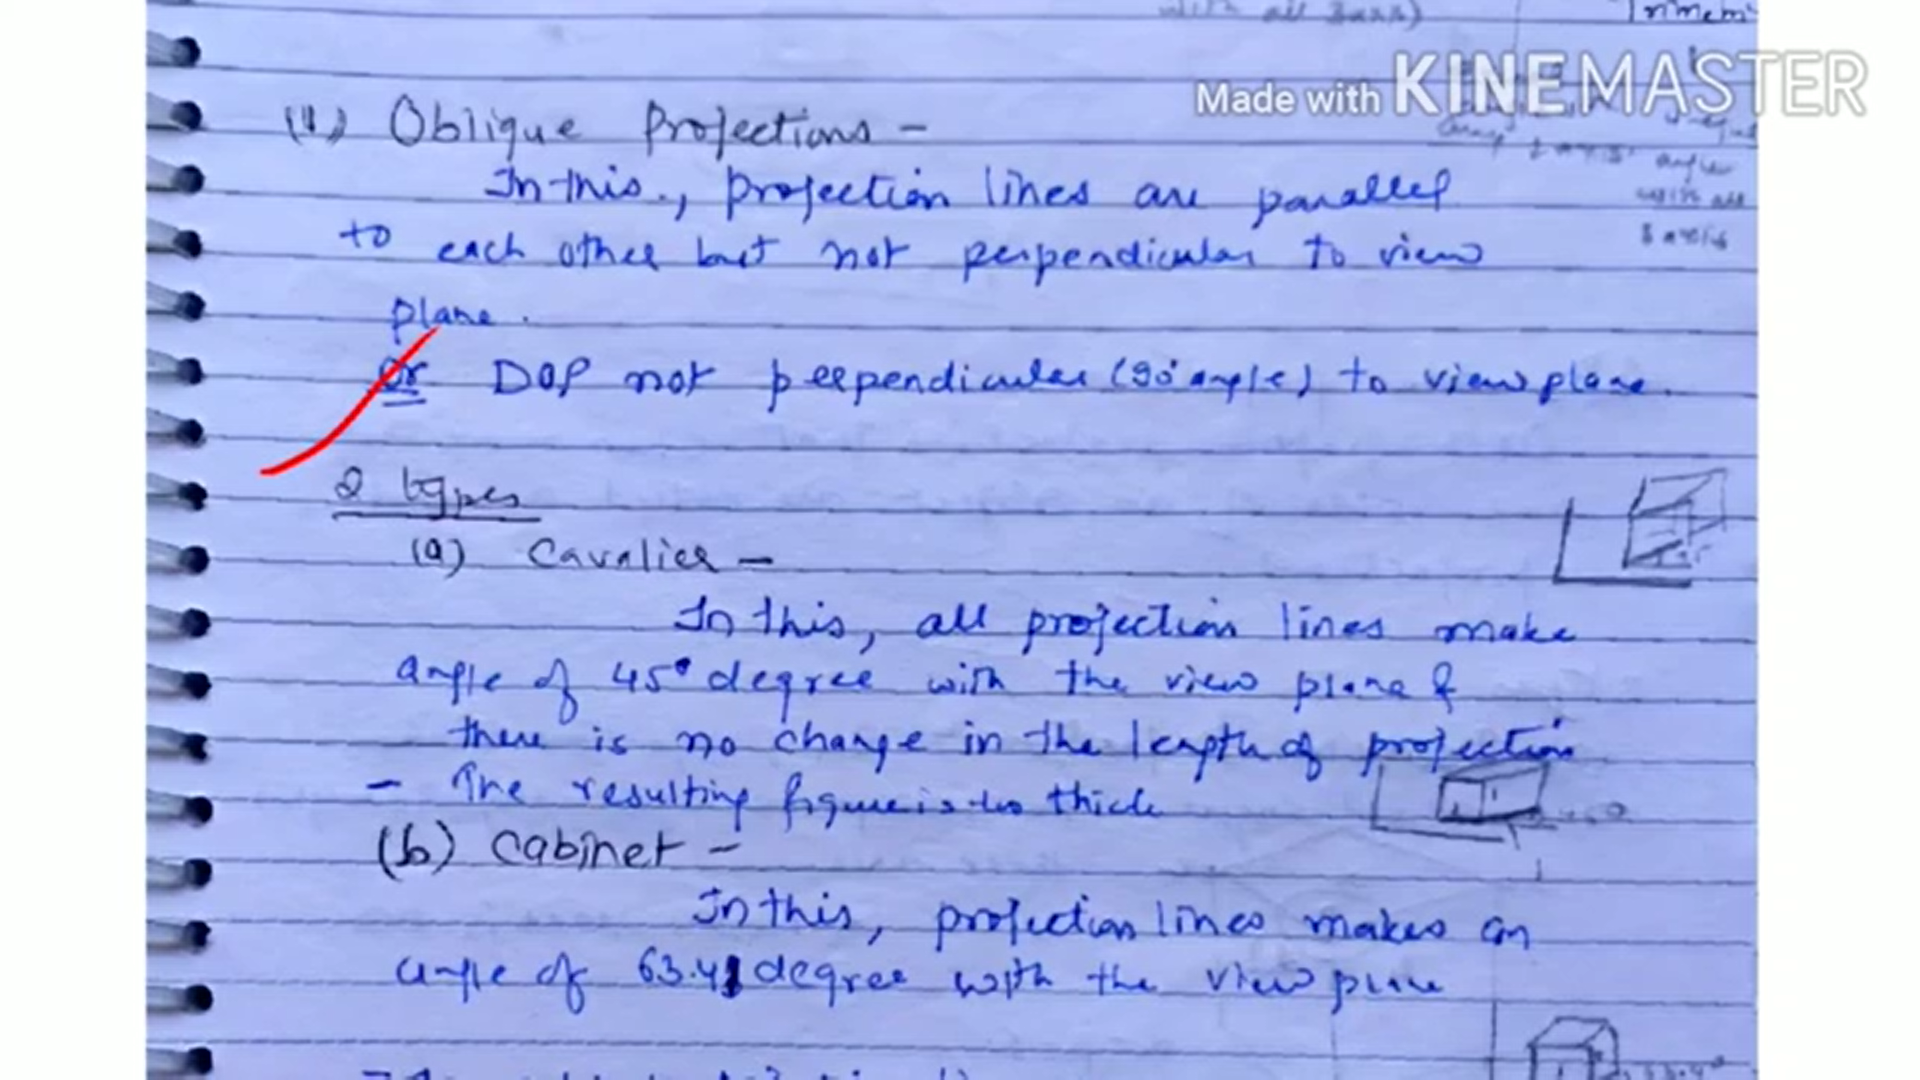 with all 3axis)
Trimetri
Made with KINEMASTER
angle
with all
3 axis
(1) Oblique Projections -
In this, projection lines are parallel
to each other but not perpendicular to view
plane.
Or DOP not perpendicular (90° angle) to view plane.
2 types
(a) Cavalier -
In this, all projection lines make
angle of 45° degree with the view plane &
there is no change in the length of projection
- The resulting figure is too thick
(b) Cabinet -
In this, projection lines makes an
angle of 63.41 degree with the view plane